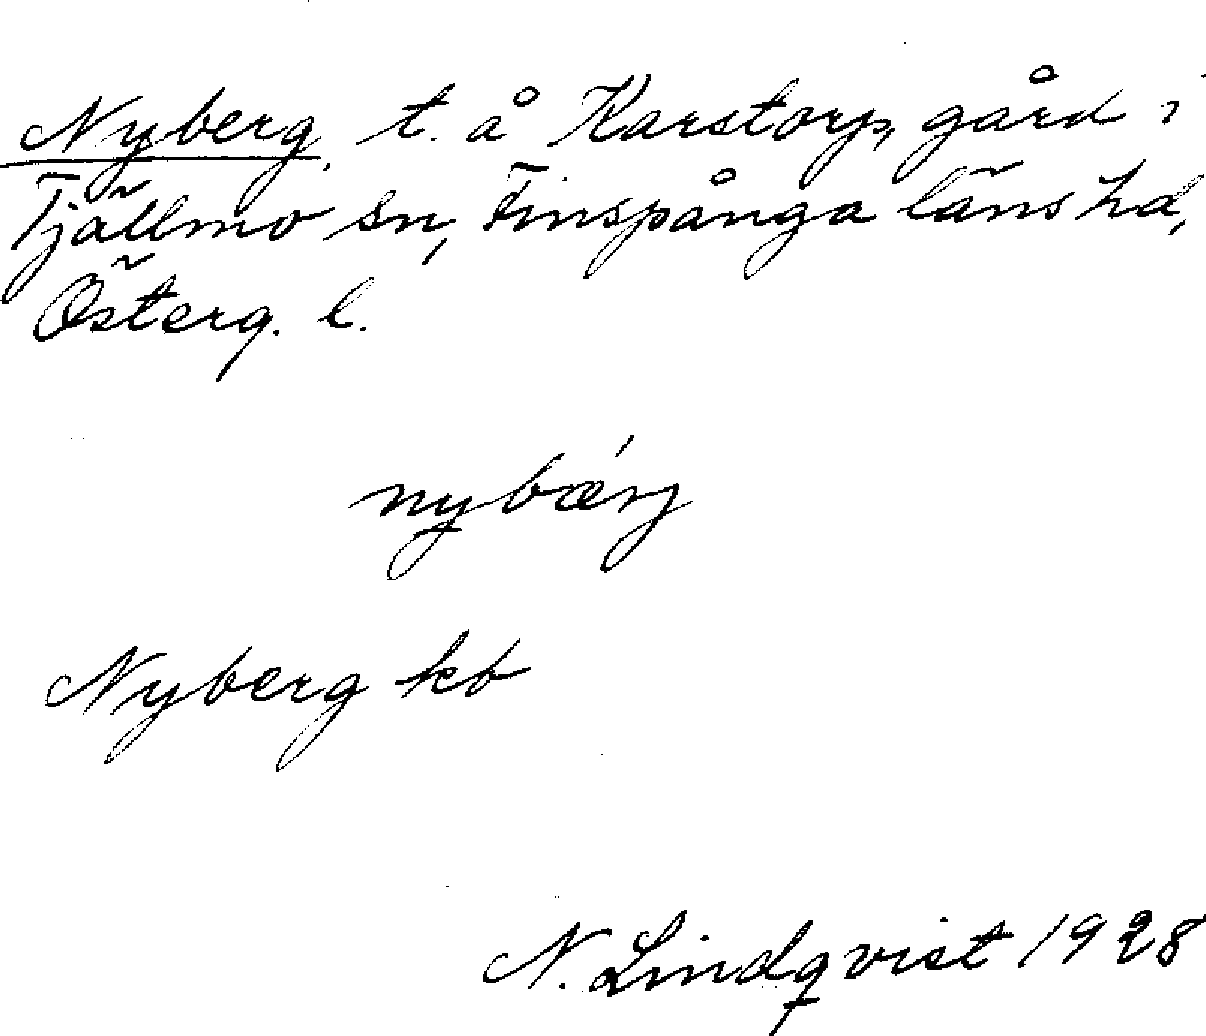 Nyberg, t. å Karstorp, gård i
Tjällmo sn, Finspånga läns hd,
Österg. l.
nybǽrj
Nyberg kb
N. Lindqvist 1928